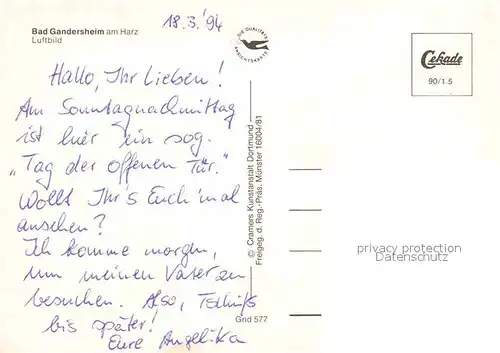 18.3.'94
Bad Gandersheim am Harz
Luftbild
DIE QUALITÄTS
ANSICHTSKARTE
Cekade
90/1.5
Hallo, Ihr Lieben!
Am Sonntagnachmittag
ist hier ein sog.
„Tag der offenen Tür."
Wollt Ihr's Euch 'mal
ansehen?
Ich komme morgen,
um meinen Vater zu
besuchen. Also, Tschüß
bis später!
Eure Angelika
© Cramers Kunstanstalt Dortmund
Freigeg. d. Reg.-Präs. Münster 16004/81
Grid 577
privacy protection
Datenschutz